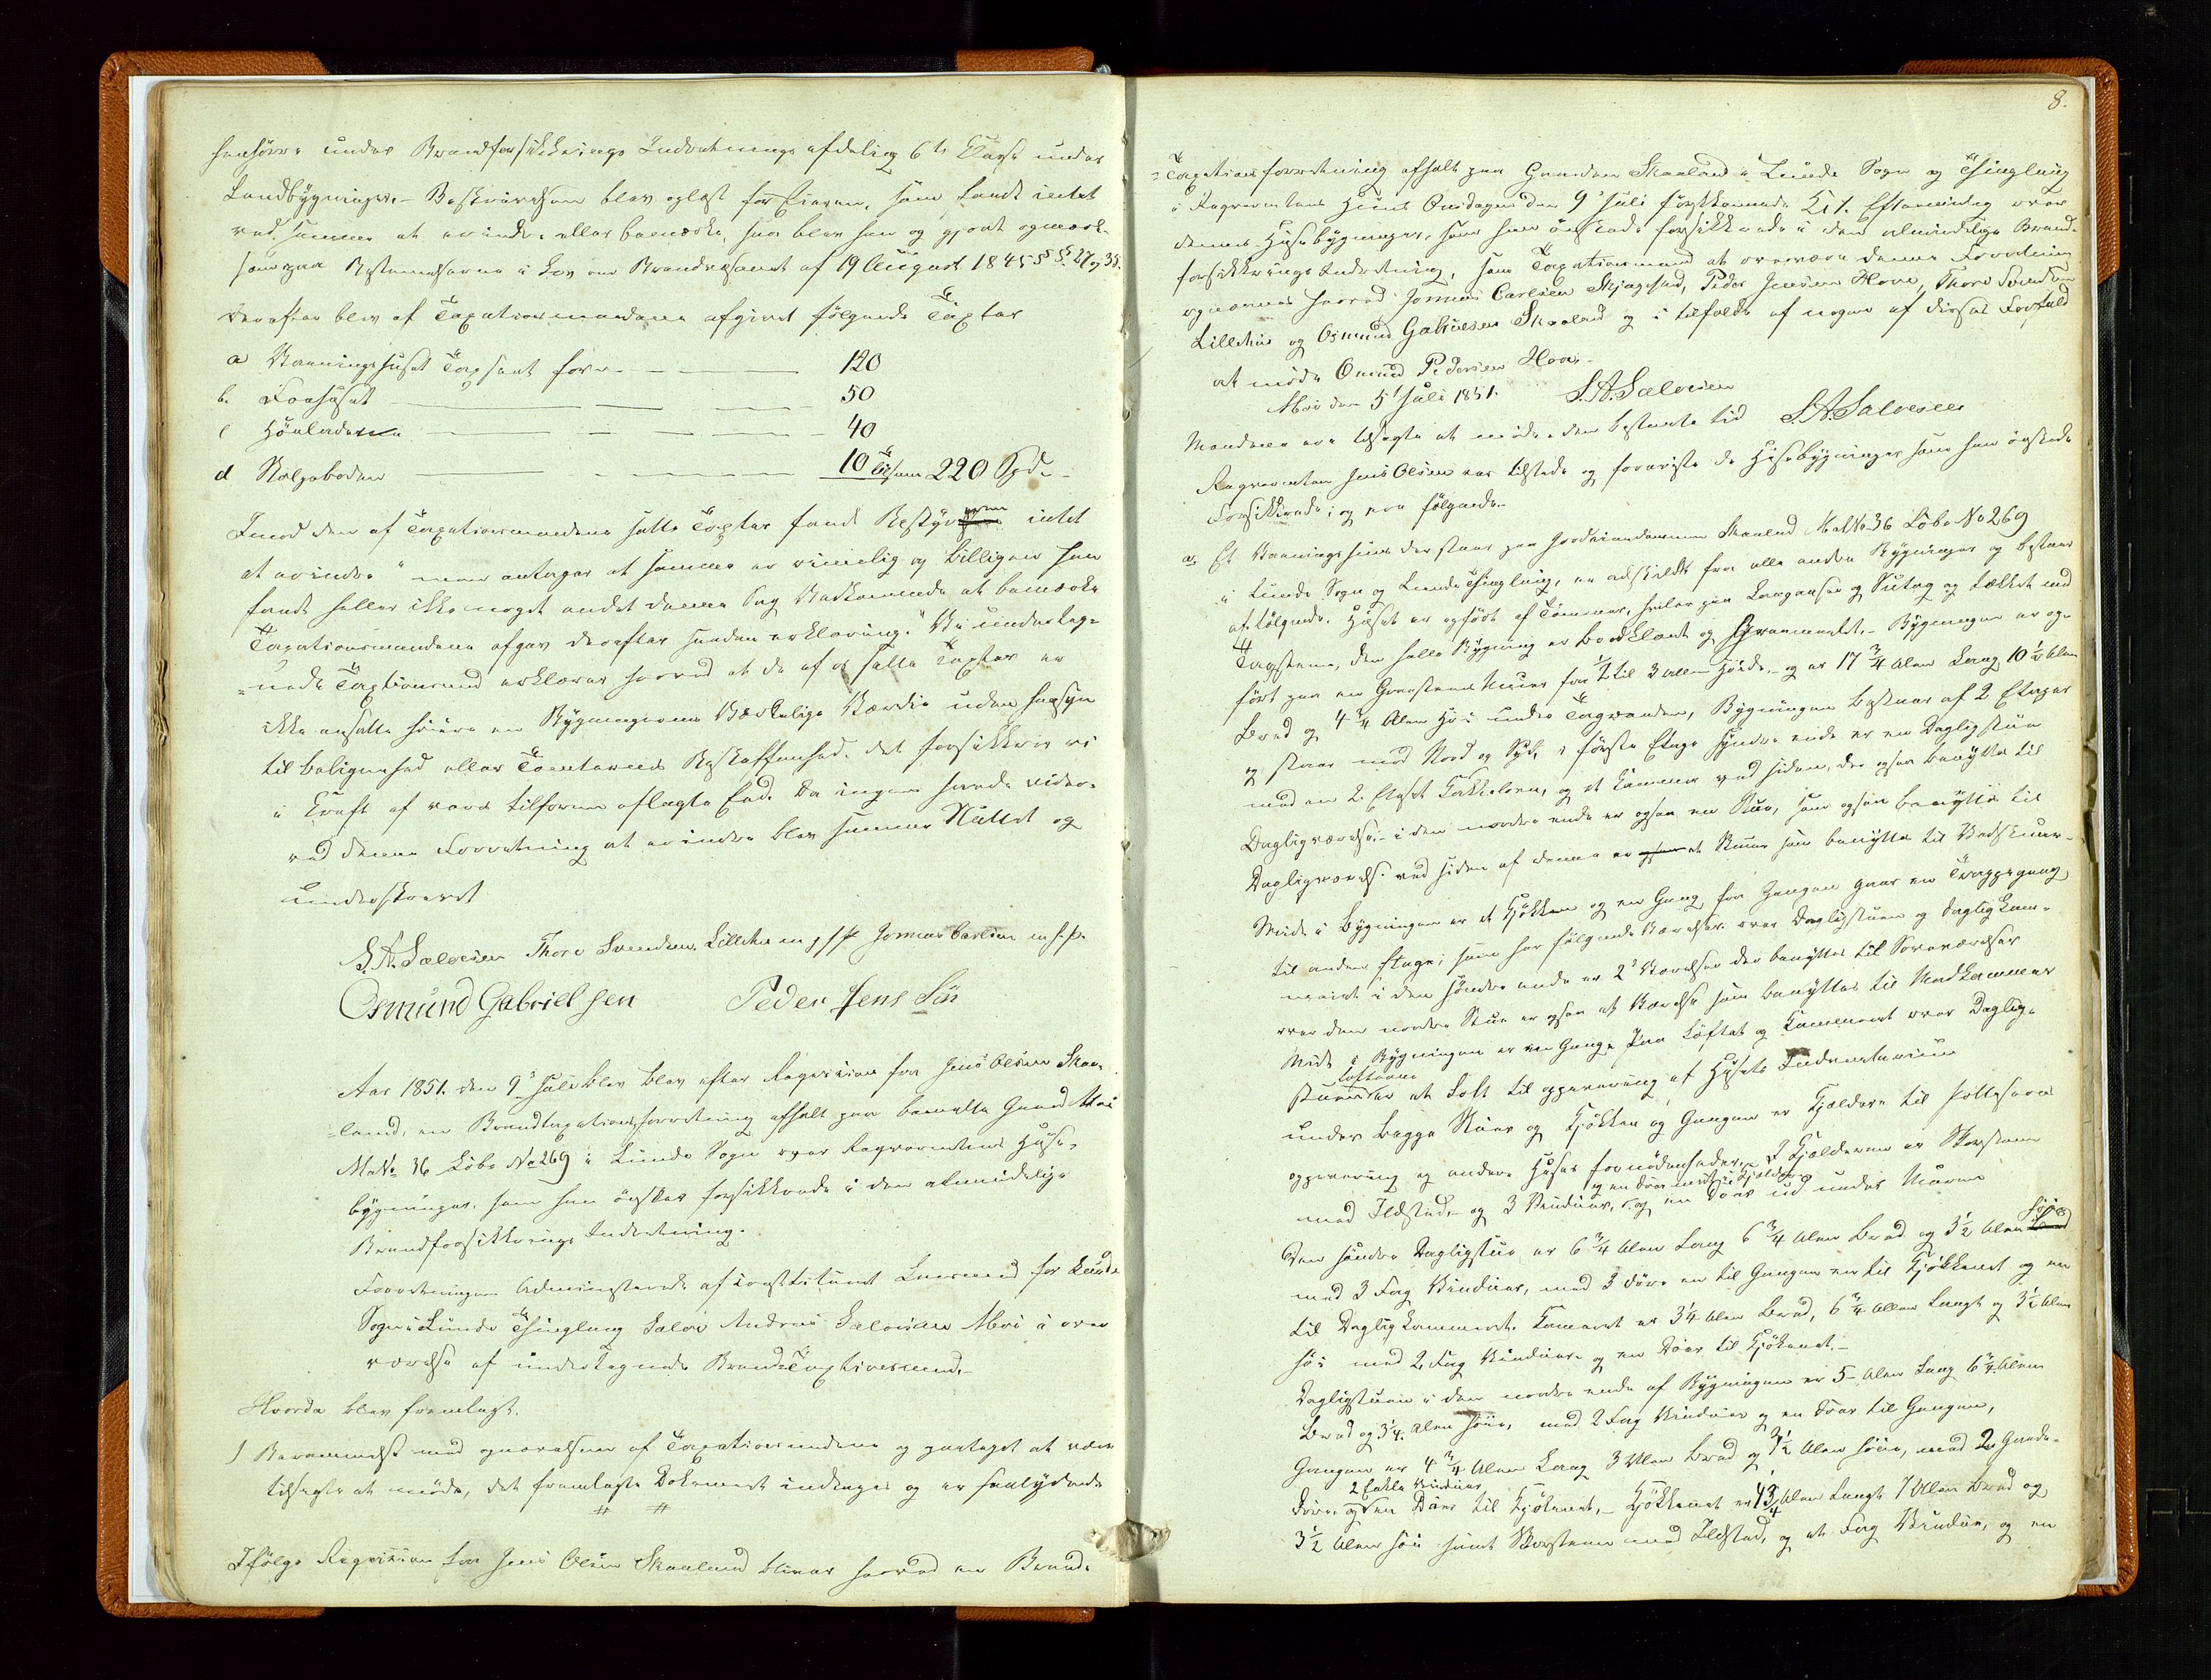 henhører under Brandforsikkrings Indretnings afdeling 6te Classe under
Landbygninger. Beskrivelsen blev oplæst for Eieren, som fandt intet
ved samme at erindre eller bemærke, han blev han og gjort opmærk-
som paa Bestemmelserne i Lov om Brandvæsenet af 19 August 1845 §§ 27 og 35.
Derefter blev af Taxationsmændene afgivet følgende Taxter
a Vaaningshuset Taxseret for 120
b. Foehuset 50
c Høeladerne 40
d Stolpeboden 10 tilsam 220 Spd.
Imod den af Taxationsmændene satte Taxter fandt Bestyreren intet
at erindre men antager at samme er rimelig og billigen han
fandt heller ikke noget andet denne Sag Vedkommende at bemærke
Taxationsmændene afgav derefter saadan erklæring. "Vi underteg-
nede Taxtionsmænd erklærer herved at de af os satte Taxter er
ikke ansatte høiere en Bygningernes Værkelige Værdie uden hensyn
til beligenhed eller Tomternes Beskaffenhed. det forsikkrer vi
i Kraft af vores tilforne aflagte Eed. Da ingen havde videre
ved denne Forretning at erindre blev samme Sluttet og
underskrevet
S.A. Salvesen Thore Svendsen Lillehie m f p Jonnas Carlsen m.f.p.
Osmund Gabrielsen Peder Jens Sön
Aar 1851. den 9de Juli blev blev efter Requisition fra Jens Olsen Skaa-
land, en Brandtaxationsforretning afholt paa bemelte Gaard Ma
MaNo 36 Løbe No 269 i Lunde Sogn over Requirentens Huse-
bygninger, som han ønsker forsikkrede i den almindelige
Brandforsikkrings Indretning.
Forretningen Administerede af constitueret Lensmand for Lunde
Sogn i Lunde Thinglaug Salve Andreas Salvesen Moi i over
værelse af undertegnede Brand Taxtionsmænd.
Hvorda blev fremlagt.
1 Berammelse med opnævelsen af Taxationsmændene og paategnet at være
tilsagte at møde, det fremlagte Dokument indtages og er saalydende
# #
Ifølge Requisition fra Jens Olsen Skaaland bliver herved en Brand-
8.
Taxationsforretning afholt paa Gaarden Skaaland i Lunde Sogn og Thinglaug
i Requirentens Huus Onsdagen den 9de Juli førstkommende Kl 1. Eftermiddag over
dennes Husebygninger, som han ønskede forsikkrede i den almindelige Brand-
forsikkrings Indretning, som Taxationsmænd at overvære denne Forretning
opnævnes herved Jonnas Carlsen Skjagestad, Peder Jensen Hove, Thore Svendsen
Lillehie og Osmund Gabrielsen Skaaland og i tilfælde af nogen af disses Forfald
at møde Omund Pedersen Hove.
Moi den 5t Juli 1851. S.A. Salvesen
Mændene ere tilsagte at møde den bestemte tid S.A. Salvesen
Requirenten Jens Olsen var tilstede og foreviste de Husebygninger som han ønskede
Forsikkrede, og ere følgende.
a. Et Vaaningshuus der staar paa Jordeiendommen Skaaland MatNo 36 Løbe No 269
i Lunde Sogn og Lunde Thinglaug, er adskildt fra alle andre Bygninger og bestaar
af følgende. Huset er opført af Tømmer, hviler paa Langaaser og Sutag og tækket med
Tagsteen, den hele Bygning er bordklædt og Gronmalet. Bygningen er op-
ført paa en Graasteens Muur fra 1/2 til 3 alen Høide, og er 17 3/4 Alen Lang 10 1/2 Alen
Bred og 4 3/4 Alen Høi under Tagranden, Bygningen bestaar af 2 Etager
og staar mod Nord og Syd, i første Etage søndre ende er en Dagligstue
med en 2 Etages Kakkelovn, og et Kammer ved siden, der ogsaa benyttes til
Dagligværelse. i den nordre ende er ogsaa en Stue, som ogsaa benyttes til
Dagligværelse ved siden af denne er et Skuur som benyttes til Vedskuur.
Midt i Bygningen er et Kjøkken og en Gang, fra Gangen gaar en Trappegang
til anden Etage; som har følgende Værelser. over Dagligstuen og dagligkam-
meret i den søndre ende er 2de Værelser der benyttes til Soveværelser
over den nordre Stue er ogsaa et Værelse som benyttes til Madkammer
Midt i Bygningen er en Gang. Paa Loftet og Kammeret over Daglig-
stuen et Loft til oppevaring af Husets Indventarium
under begge Stuer og Kjøkken og Gangen er Kjældere til Potteters
oppevaring og andere Huses fornødenheder. I Kjælderen er Skorsteen
med Ildsted, og 3 Vinduer, og en Dør ud under Muren
Den søndre Dagligstue er 6 3/4 Alen Lang 6 3/4 Alen Bred og 3 1/2 Alen høi
med 3 Fag Vinduer, med 3 døre en til Gangen en til Kjøkkenet og en
til Dagligkammeret. Kameret er 3 1/4 Alen Bred, 6 3/4 Alen Langt og 3 1/2 Alen
høi med 2 Fag Vinduer og en Dør til Kjøkenet.
Dagligstuen i den nordre ende af Bygningen er 5 Alen Lang 6 3/4 Alen
Bred og 3 1/4 Alen høie, med 2 Fag Vinduer og en Dør til Gangen,
Gangen er 4 3/4 Alen Lang 3 Alen Bred og 3 1/2 Alen høie, med 2 Gade-
2 Enkle Vinduer
døre og en Dør til Kjøkenet, Kjøkkenet er 4 3/4 Alen Langt 7 Alen Bred og
3 1/2 Alen høi samt Skorsteen med Ildsted, og et Fag Vindue, og en